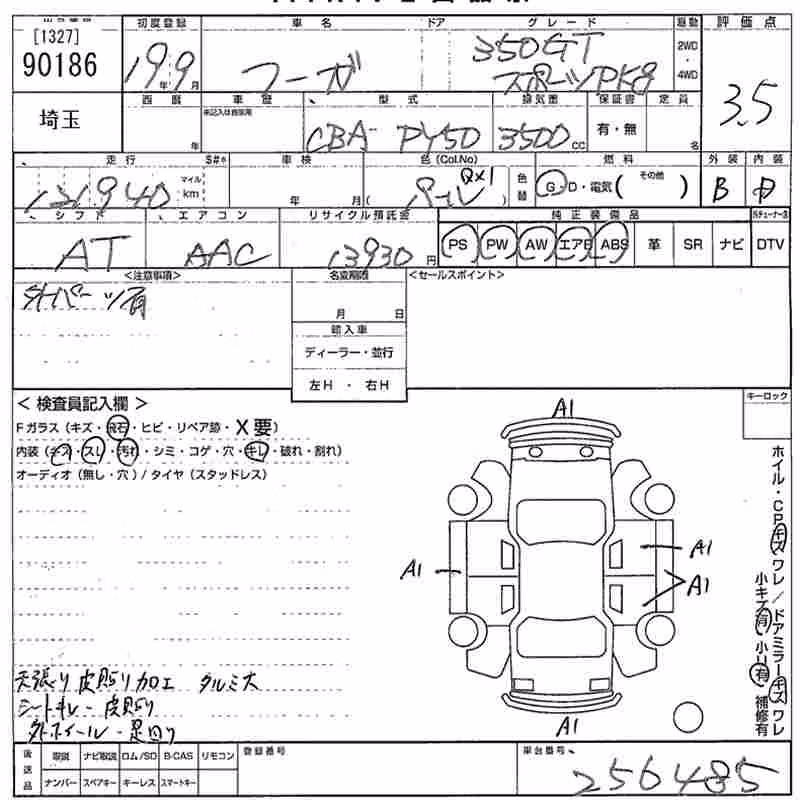 [1327]
90186
埼玉
初度登録 車名 ドア グレード 駆動 評価点
19年9月 フーガ 350GT スポーツPK8 2WD・4WD 3.5
西暦 車歴 型式 排気量 保証書 定員
年 未記入は自家用 CBA-PY50 3500cc 有・無 名
走行 S#* 車検 色(Col.No) 色替 燃料 外装 内装
131940 マイル km 年 月 パール QX1 G・D・電気( その他 ) B D
シフト エアコン リサイクル預託金 純正装備品
AT AAC 13930円 PS PW AW エアB ABS 革 SR ナビ DTV
<注意事項> 名変期限 <セールスポイント>
外パーツ有 月 日
輸入車
ディーラー・並行
左H・右H
< 検査員記入欄 > キーロック
Fガラス(キズ・飛石・ヒビ・リペア跡・X要)
内装(キズ・スレ・汚れ・シミ・コゲ・穴・キレ・破れ・割れ)
オーディオ(無し・穴)/タイヤ(スタッドレス)
A1
A1
A1
A1
A1
ホイル・CPキズワレ/ドアミラーキズワレ
小キズ有 小リ有 補修有
天張り皮貼り加工 タルミ大
シートキレ-皮貼り
外ホイール-足回り
後送品 取説 ナビ取説 ロム/SD B-CAS リモコン 登録番号 車台番号
ナンバー スペアキー キーレス スマートキー 256485